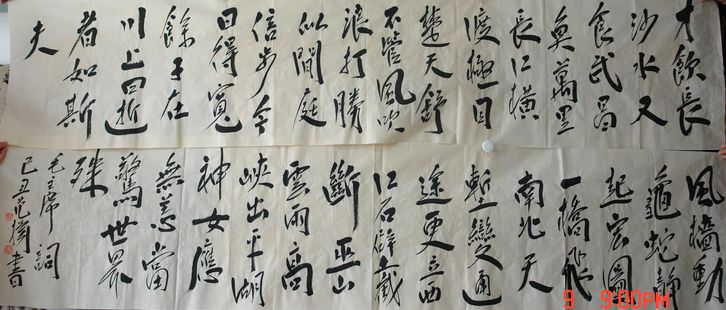 才飲長
沙水又
食武昌
魚萬里
長江橫
渡極目
楚天舒
不管風吹
浪打勝
似閒庭
信步今
日得寬
餘子在
川上曰逝
者如斯
夫
風檣動
龜蛇靜
起宏圖
一橋飛
南北天
塹變通
途更立西
江石壁截
斷巫山
雲雨高
峽出平湖
神女應
無恙當
驚世界
殊
毛主席詞
己丑范書
9 9:00PM